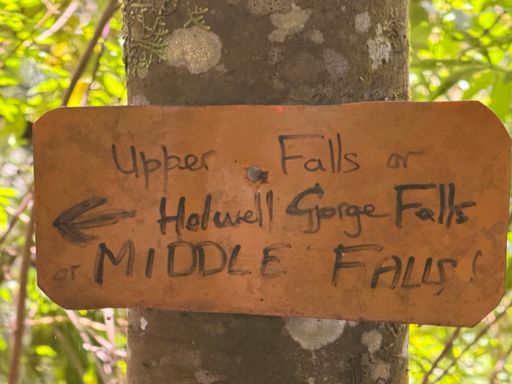 Upper Falls or
← Holwell Gorge Falls
or MIDDLE FALLS!